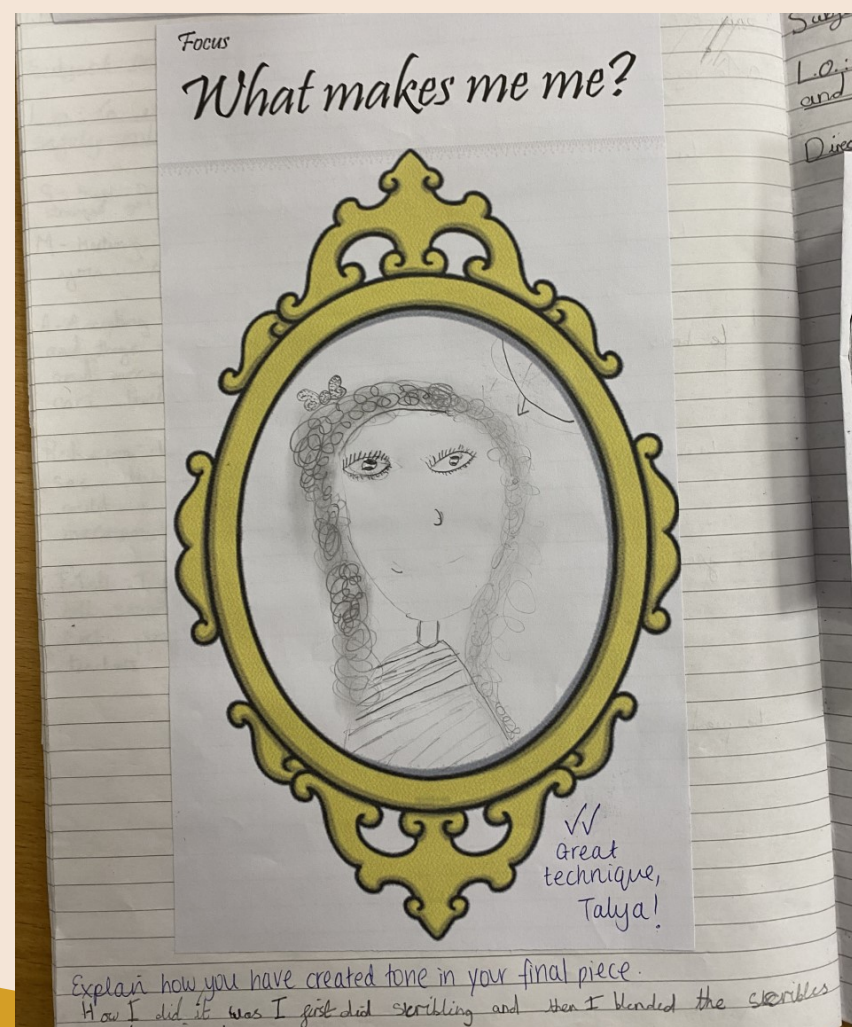 Focus
What makes me me?
Subje
L.O.:
and
Direc
✓✓
Great
technique,
Talya!
Explain how you have created tone in your final piece.
How I did it was I first did skribling and then I blended the skeribles